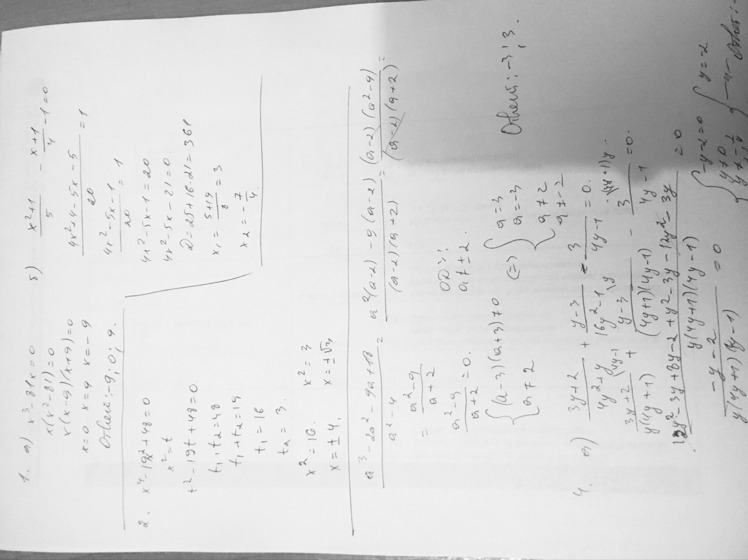 1. а) x³ - 81x = 0
x(x² - 81) = 0
x(x-9)(x+9) = 0
x=0 x=9 x=-9
Ответ: -9; 0; 9.
б) x²+1/5 - x+1/4 - 1 = 0
4x²+4-5x-5/20 = 1
4x²-5x-1/20 = 1
4x²-5x-1=20
4x²-5x-21=0.
D=25+16·21=361
x₁ = 5+19/8 = 3
x₂ = -7/4.
2. x⁴-19x²+48=0
x²=t
t²-19t+48=0
t₁·t₂=48
t₁+t₂=19
t₁=16
t₂=3.
x²=16. x²=3
x=±4. x=±√3
a³-2a²-9a+18/a²-4 = a²(a-2)-9(a-2)/(a-2)(a+2) = (a-2)(a²-9)/(a-2)(a+2) =
= a²-9/a+2
a²-9/a+2 = 0.
ОДЗ:
a≠±2.
{(a-3)(a+3)=0
a≠2
(=) {a=3
a=-3
{a≠2
a≠-2
Ответ: -3; 3.
4. а) 3y+2/4y²+y + y-3/16y²-1 = 3/4y-1
3y+2/y(4y+1) + y-3/(4y+1)(4y-1) - 3/4y-1 = 0.
12y²-3y+8y-2+y²-3y-12y²-3y/y(4y+1)(4y-1) = 0
-y-2/y(4y+1)(4y-1) = 0
{-y-2=0
y≠0
{y=-2
Ответ: